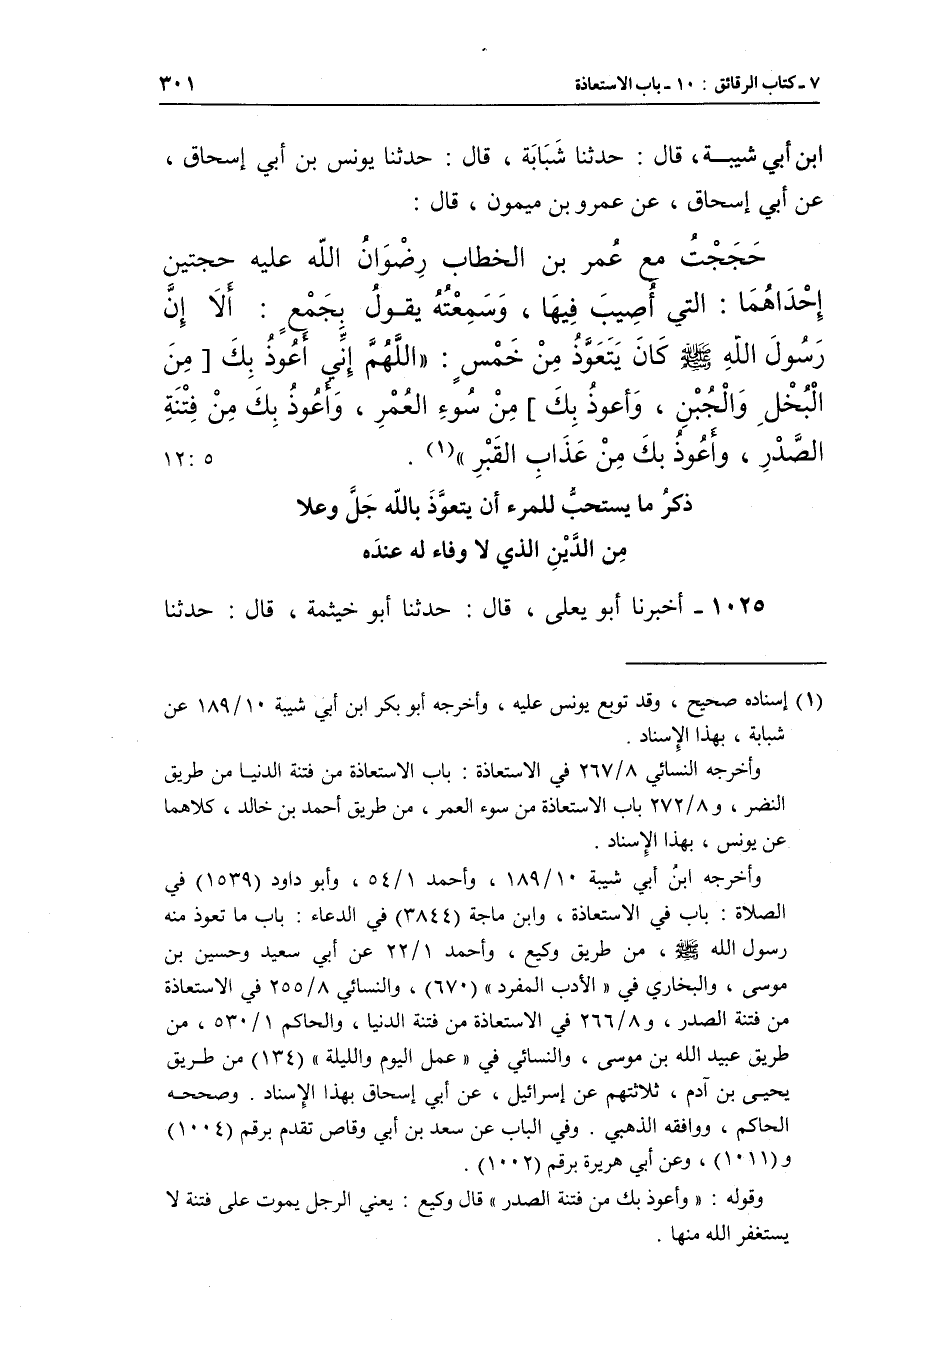 ٧ - كتاب الرقائق : ١٠ - باب الاستعاذة ٣٠١
ابن أبي شيبــة، قال : حدثنا شَبَابَة ، قال : حدثنا يونس بن أبي إسحاق ،
عن أبي إسحاق ، عن عمرو بن ميمون ، قال :
حَجَجْتُ مع عُمر بن الخطاب رِضْوَانُ اللّه عليه حجتين
إِحْدَاهُمَا : التي أُصِيبَ فِيهَا ، وَسَمِعْتُهُ يقـولُ بِجَمْعٍ : أَلَا إِنَّ
رَسُولَ اللّهِ ﷺ كَانَ يَتَعَوَّذُ مِنْ خَمْسٍ : «اللَّهُمَّ إِنِّي أَعُوذُ بِكَ [ مِنَ
الْبُخْلِ وَالْجُبْنِ ، وَأعوذُ بِكَ ] مِنْ سُوءِ العُمْرِ ، وَأَعُوذُ بِكَ مِنْ فِتْنَةِ
الصَّدْرِ ، وأَعُوذُ بكَ مِنْ عَذَابِ القَبْرِ »(١) . ٥ :١٢
ذكرُ ما يستحبُّ للمرء أن يتعوَّذَ باللّه جَلَّ وعلا
مِن الدَّيْنِ الذي لا وفاء له عندَه
١٠٢٥ - أخبرنا أبو يعلى ، قال : حدثنا أبو خيثمة ، قال : حدثنا
(١) إسناده صحيح ، وقد توبع يونس عليه ، وأخرجه أبو بكر ابن أبي شيبة ١٨٩/١٠ عن
شبابة ، بهذا الإِسناد .
وأخرجه النسائي ٢٦٧/٨ في الاستعاذة : باب الاستعاذة من فتنة الدنيـا من طريق
النضر ، و٢٧٢/٨ باب الاستعاذة من سوء العمر ، من طريق أحمد بن خالد ، كلاهما
عن يونس ، بهذا الإِسناد .
وأخرجه ابنُ أبي شيبة ١٨٩/١٠ ، وأحمد ٥٤/١ ، وأبو داود (١٥٣٩) في
الصلاة : باب في الاستعاذة ، وابن ماجة (٣٨٤٤) في الدعاء : باب ما تعوذ منه
رسول الله ﷺ ، من طريق وكيع ، وأحمد ٢٢/١ عن أبي سعيد وحسين بن
موسى ، والبخاري في « الأدب المفرد » (٦٧٠) ، والنسائي ٢٥٥/٨ في الاستعاذة
من فتنة الصدر ، و٢٦٦/٨ في الاستعاذة من فتنة الدنيا ، والحاكم ٥٣٠/١ ، من
طريق عبيد الله بن موسى ، والنسائي في « عمل اليوم والليلة » (١٣٤) من طـريق
يحيـى بن آدم ، ثلاثتهم عن إسرائيل ، عن أبي إسحاق بهذا الإِسناد . وصححـه
الحاكم ، ووافقه الذهبي . وفي الباب عن سعد بن أبي وقاص تقدم برقم (١٠٠٤)
و(١٠١١) ، وعن أبي هريرة برقم (١٠٠٢) .
وقوله : « وأعوذ بك من فتنة الصدر » قال وكيع : يعني الرجل يموت على فتنة لا
يستغفر الله منها .